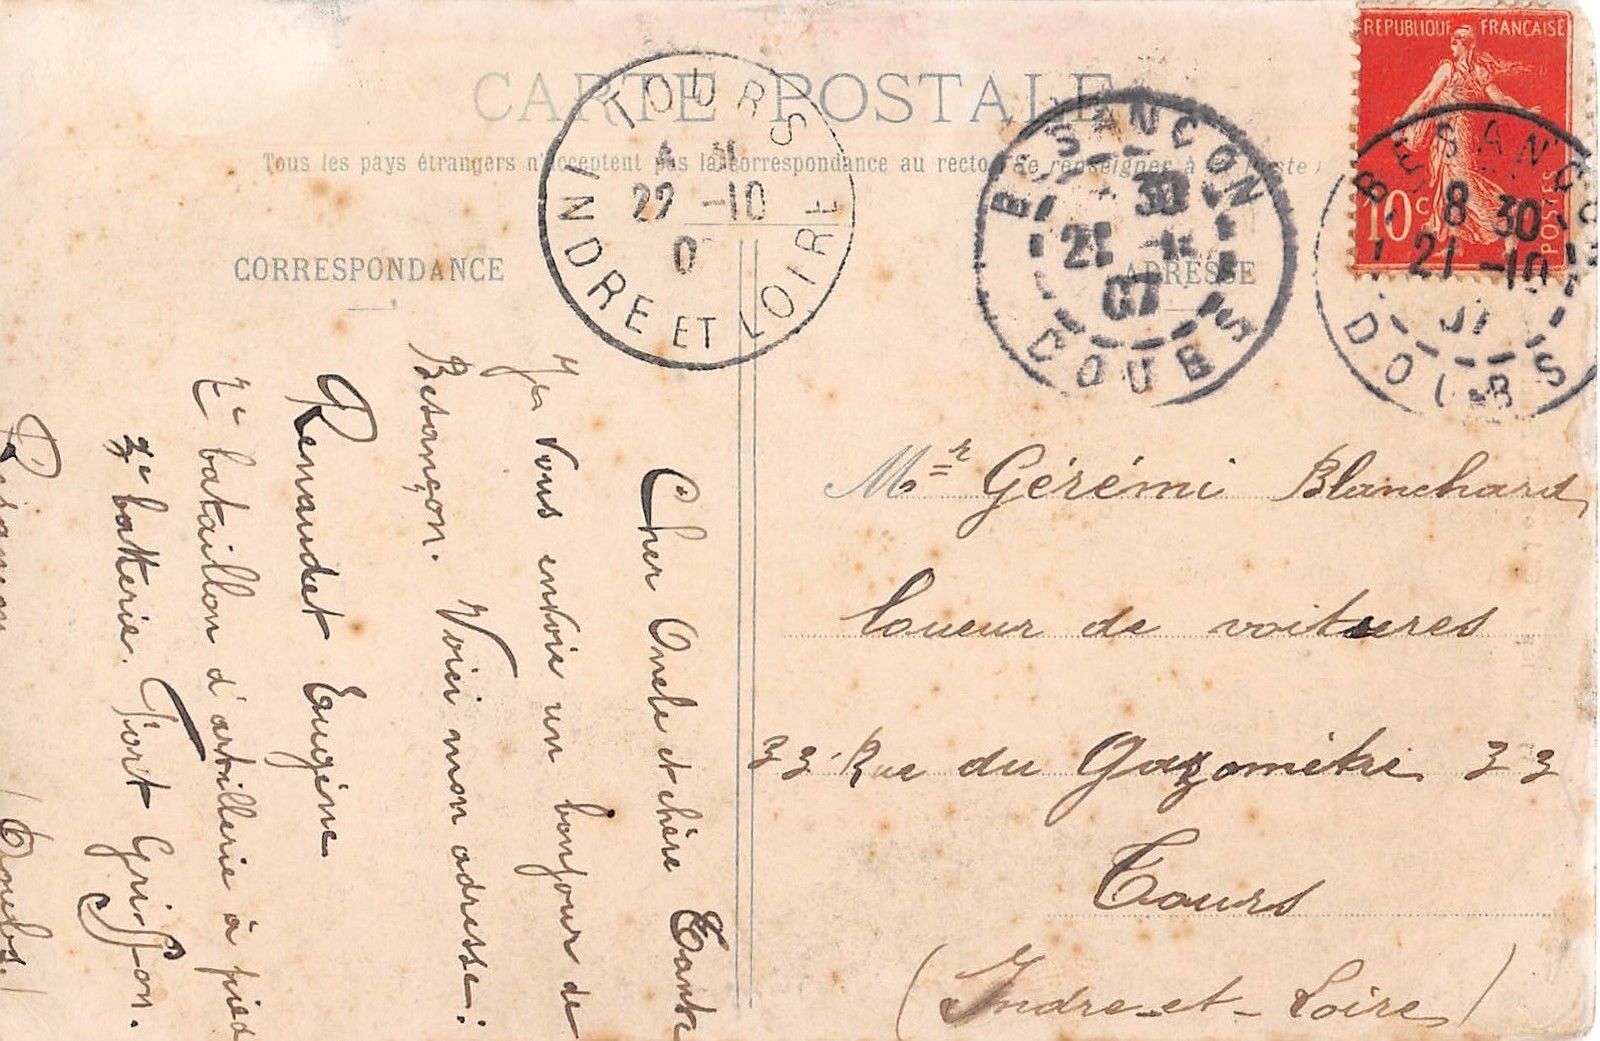 CARTE POSTALE
Tous les pays étrangers n'acceptent pas la correspondance au recto (Se renseigner à la Poste)
CORRESPONDANCE
ADRESSE
TOURS
22 -10
0
INDRE ET LOIRE
BESANÇON
30
21
07
DOUBS
REPUBLIQUE FRANÇAISE
10 c
POSTES
BESANÇON
8 30
21 -10
07
DOUBS
Cher Oncle et chère Tante
Je vous envoie un bonjour de
Betançon. Voici mon adresse:
Renaudet Eugène
2e bataillon d'artillerie à pied
3e batterie. Fort Griffon.
Besançon (Doubs.)
Mr Gérémi Blanchard
loueur de voitures
33 Rue du Gazomètre 33
Tours
(Indre-et-Loire)